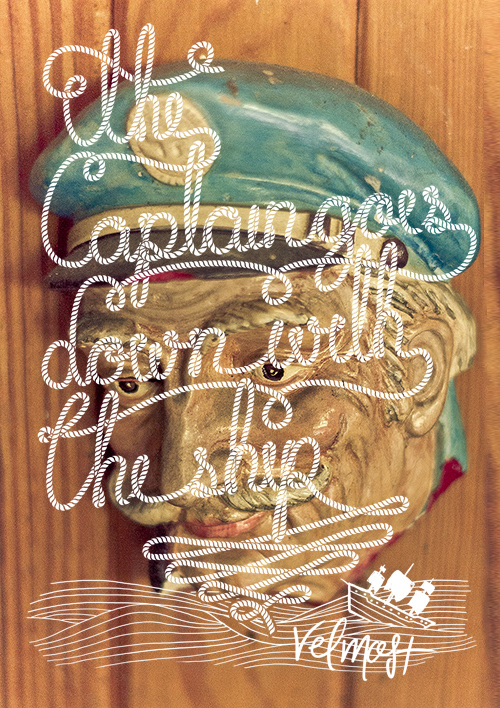 the
Captain goes
down with
the ship
Velmost